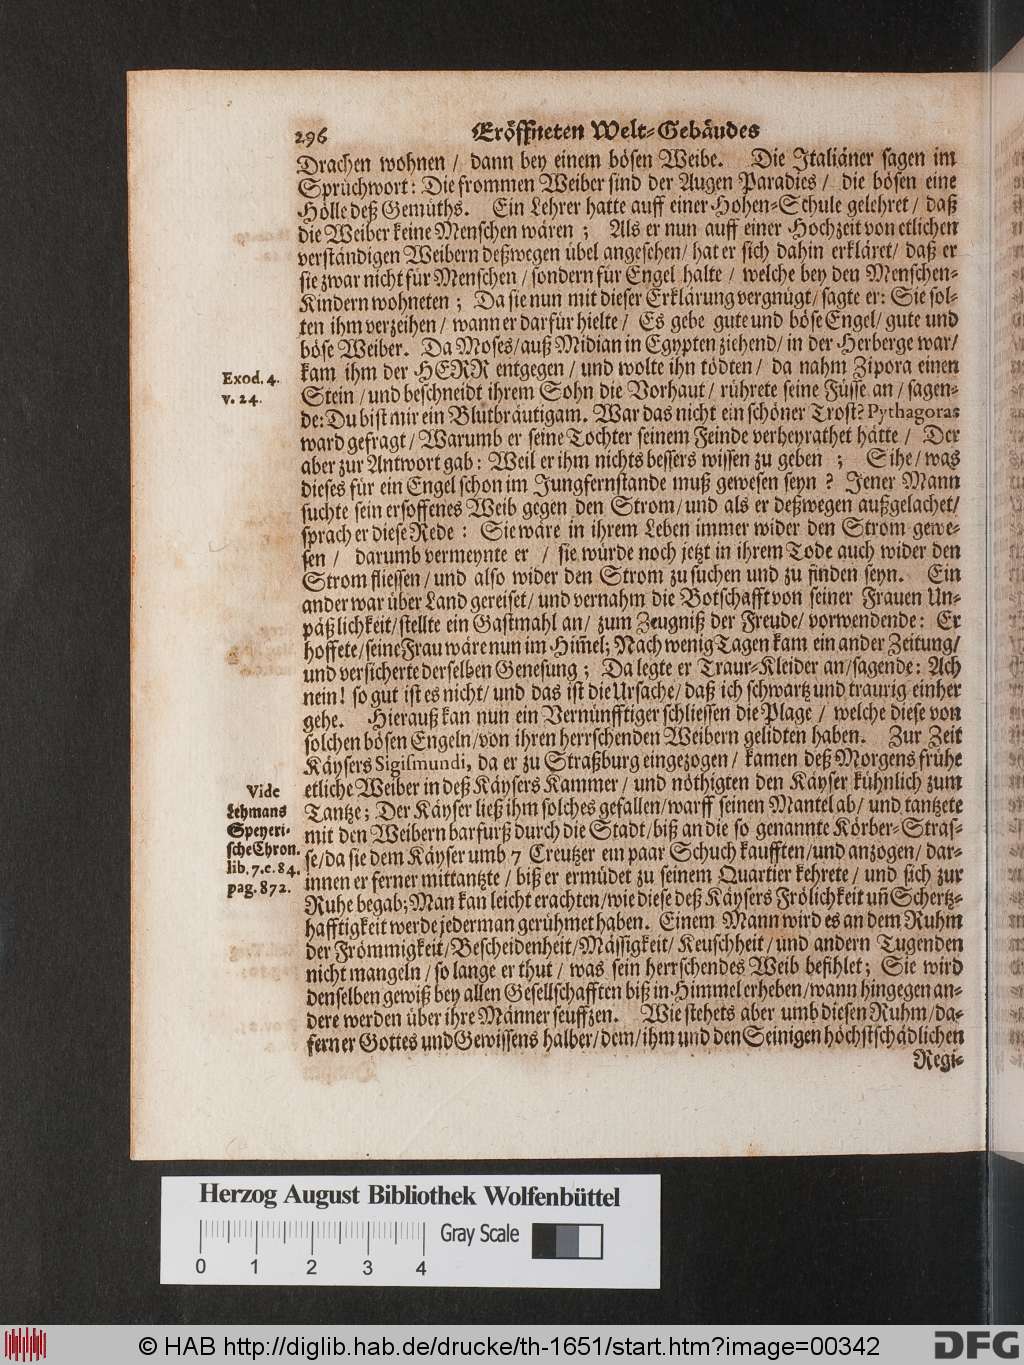 296
Eröffneten Welt-Gebäudes
Drachen wohnen / dann bey einem bösen Weibe. Die Italiäner sagen im
Sprüchwort: Die frommen Weiber sind der Augen Paradies / die bösen eine
Hölle deß Gemüths. Ein Lehrer hatte auff einer Hohen-Schule gelehret / daß
die Weiber keine Menschen wären ; Als er nun auff einer Hochzeit von etlichen
verständigen Weibern deßwegen übel angesehen / hat er sich dahin erkläret / daß er
sie zwar nicht für Menschen / sondern für Engel halte / welche bey den Menschen-
Kindern wohneten ; Da sie nun mit dieser Erklärung vergnügt / sagte er: Sie sol-
ten ihm verzeihen / wann er darfür hielte / Es gebe gute und böse Engel / gute und
böse Weiber. Da Moses / auß Midian in Egypten ziehend / in der Herberge war /
kam ihm der HERR entgegen / und wolte ihn tödten / da nahm Zipora einen
Exod. 4.
v. 24.
Stein / und beschneidt ihrem Sohn die Vorhaut / rührete seine Füsse an / sagen-
de: Du bist mir ein Blutbräutigam. War das nicht ein schöner Trost? Pythagoras
ward gefragt / Warumb er seine Tochter seinem Feinde verheyrathet hätte / Der
aber zur Antwort gab: Weil er ihm nichts bessers wissen zu geben ; Sihe / was
dieses für ein Engel schon im Jungfernstande muß gewesen seyn ? Jener Mann
suchte sein ersoffenes Weib gegen den Strom / und als er deßwegen außgelachet /
sprach er diese Rede : Sie wäre in ihrem Leben immer wider den Strom gewe-
sen / darumb vermeynte er / sie würde noch jetzt in ihrem Tode auch wider den
Strom fliessen / und also wider den Strom zu suchen und zu finden seyn. Ein
ander war über Land gereiset / und vernahm die Botschafft von seiner Frauen Un-
päßlichkeit / stellte ein Gastmahl an / zum Zeugniß der Freude / vorwendende: Er
hoffete / seine Frau wäre nun im Him̃el; Nach wenig Tagen kam ein ander Zeitung /
und versicherte derselben Genesung ; Da legte er Traur-Kleider an / sagende: Ach
nein! so gut ist es nicht / und das ist die Ursache / daß ich schwartz und traurig einher
gehe. Hierauß kan nun ein Vernünfftiger schliessen die Plage / welche diese von
solchen bösen Engeln / von ihren herrschenden Weibern gelidten haben. Zur Zeit
Käysers Sigismundi, da er zu Straßburg eingezogen / kamen deß Morgens frühe
etliche Weiber in deß Käysers Kammer / und nöthigten den Käyser kühnlich zum
Vide
Lehmans
Speyeri-
sche Chron.
lib. 7. c. 84.
pag. 872.
Tantze; Der Käyser ließ ihm solches gefallen / warff seinen Mantel ab / und tantzete
mit den Weibern barfurß durch die Stadt / biß an die so genannte Körber-Stras-
se / da sie dem Käyser umb 7 Creutzer ein paar Schuch kaufften / und anzogen / dar-
innen er ferner mittantzte / biß er ermüdet zu seinem Quartier kehrete / und sich zur
Ruhe begab; Man kan leicht erachten / wie diese deß Käysers Frölichkeit uñ Schertz-
hafftigkeit werde jederman gerühmet haben. Einem Mann wird es an dem Ruhm
der Frömmigkeit / Bescheidenheit / Mässigkeit / Keuschheit / und andern Tugenden
nicht mangeln / so lange er thut / was sein herrschendes Weib befihlet ; Sie wird
denselben gewiß bey allen Gesellschafften biß in Himmel erheben / wann hingegen an-
dere werden über ihre Männer seuffzen. Wie stehets aber umb diesen Ruhm / da-
fern er Gottes und Gewissens halber / dem / ihm und den Seinigen höchstschädlichen
Regi-
Herzog August Bibliothek Wolfenbüttel
Gray Scale
0 1 2 3 4
© HAB http://diglib.hab.de/drucke/th-1651/start.htm?image=00342
DFG